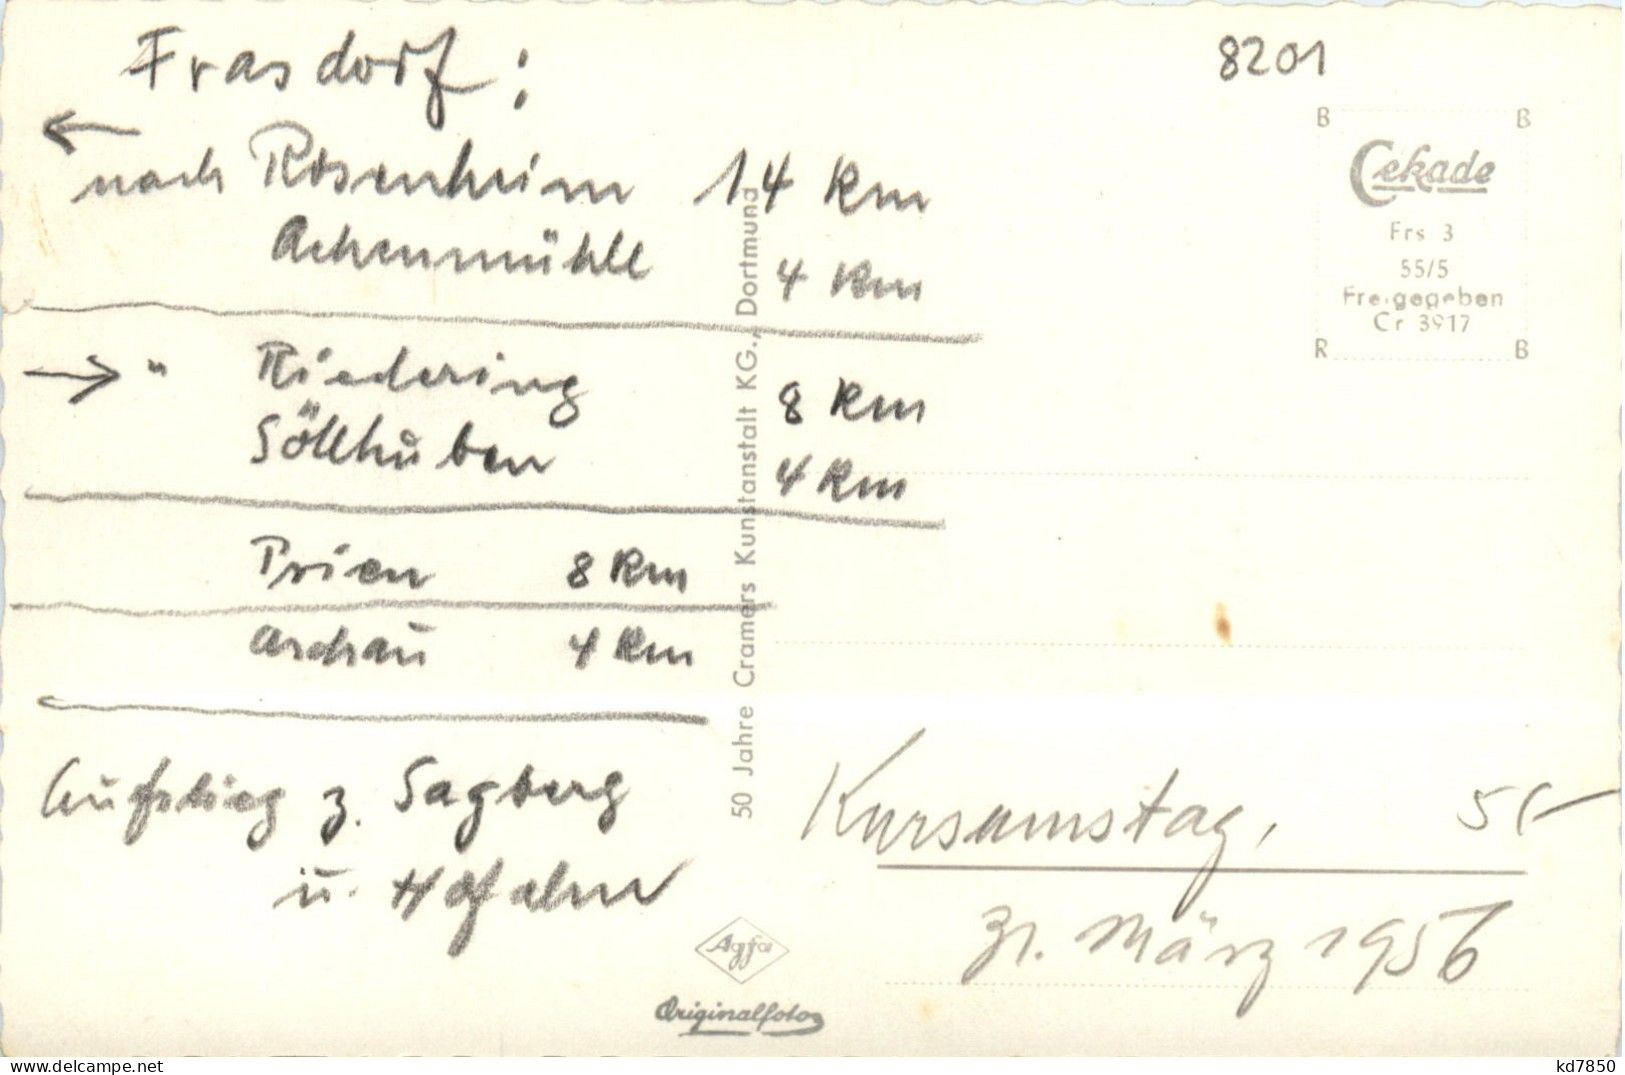 Frasdorf:
←
nach Rosenheim 14 km
Achenmühle 4 km
→ " Riedering 8 km
Söllhuben 4 km
Prien 8 km
Aschau 4 km
Aufstieg z. Sagberg
u. Hofalm
50 Jahre Cramers Kunstanstalt KG., Dortmund
Agfa
Originalfoto
8201
B B
Cekade
Frs 3
55/5
Freigegeben
Cr 3917
R B
Karsamstag,
31. März 1956
delcampe.net
kd7850